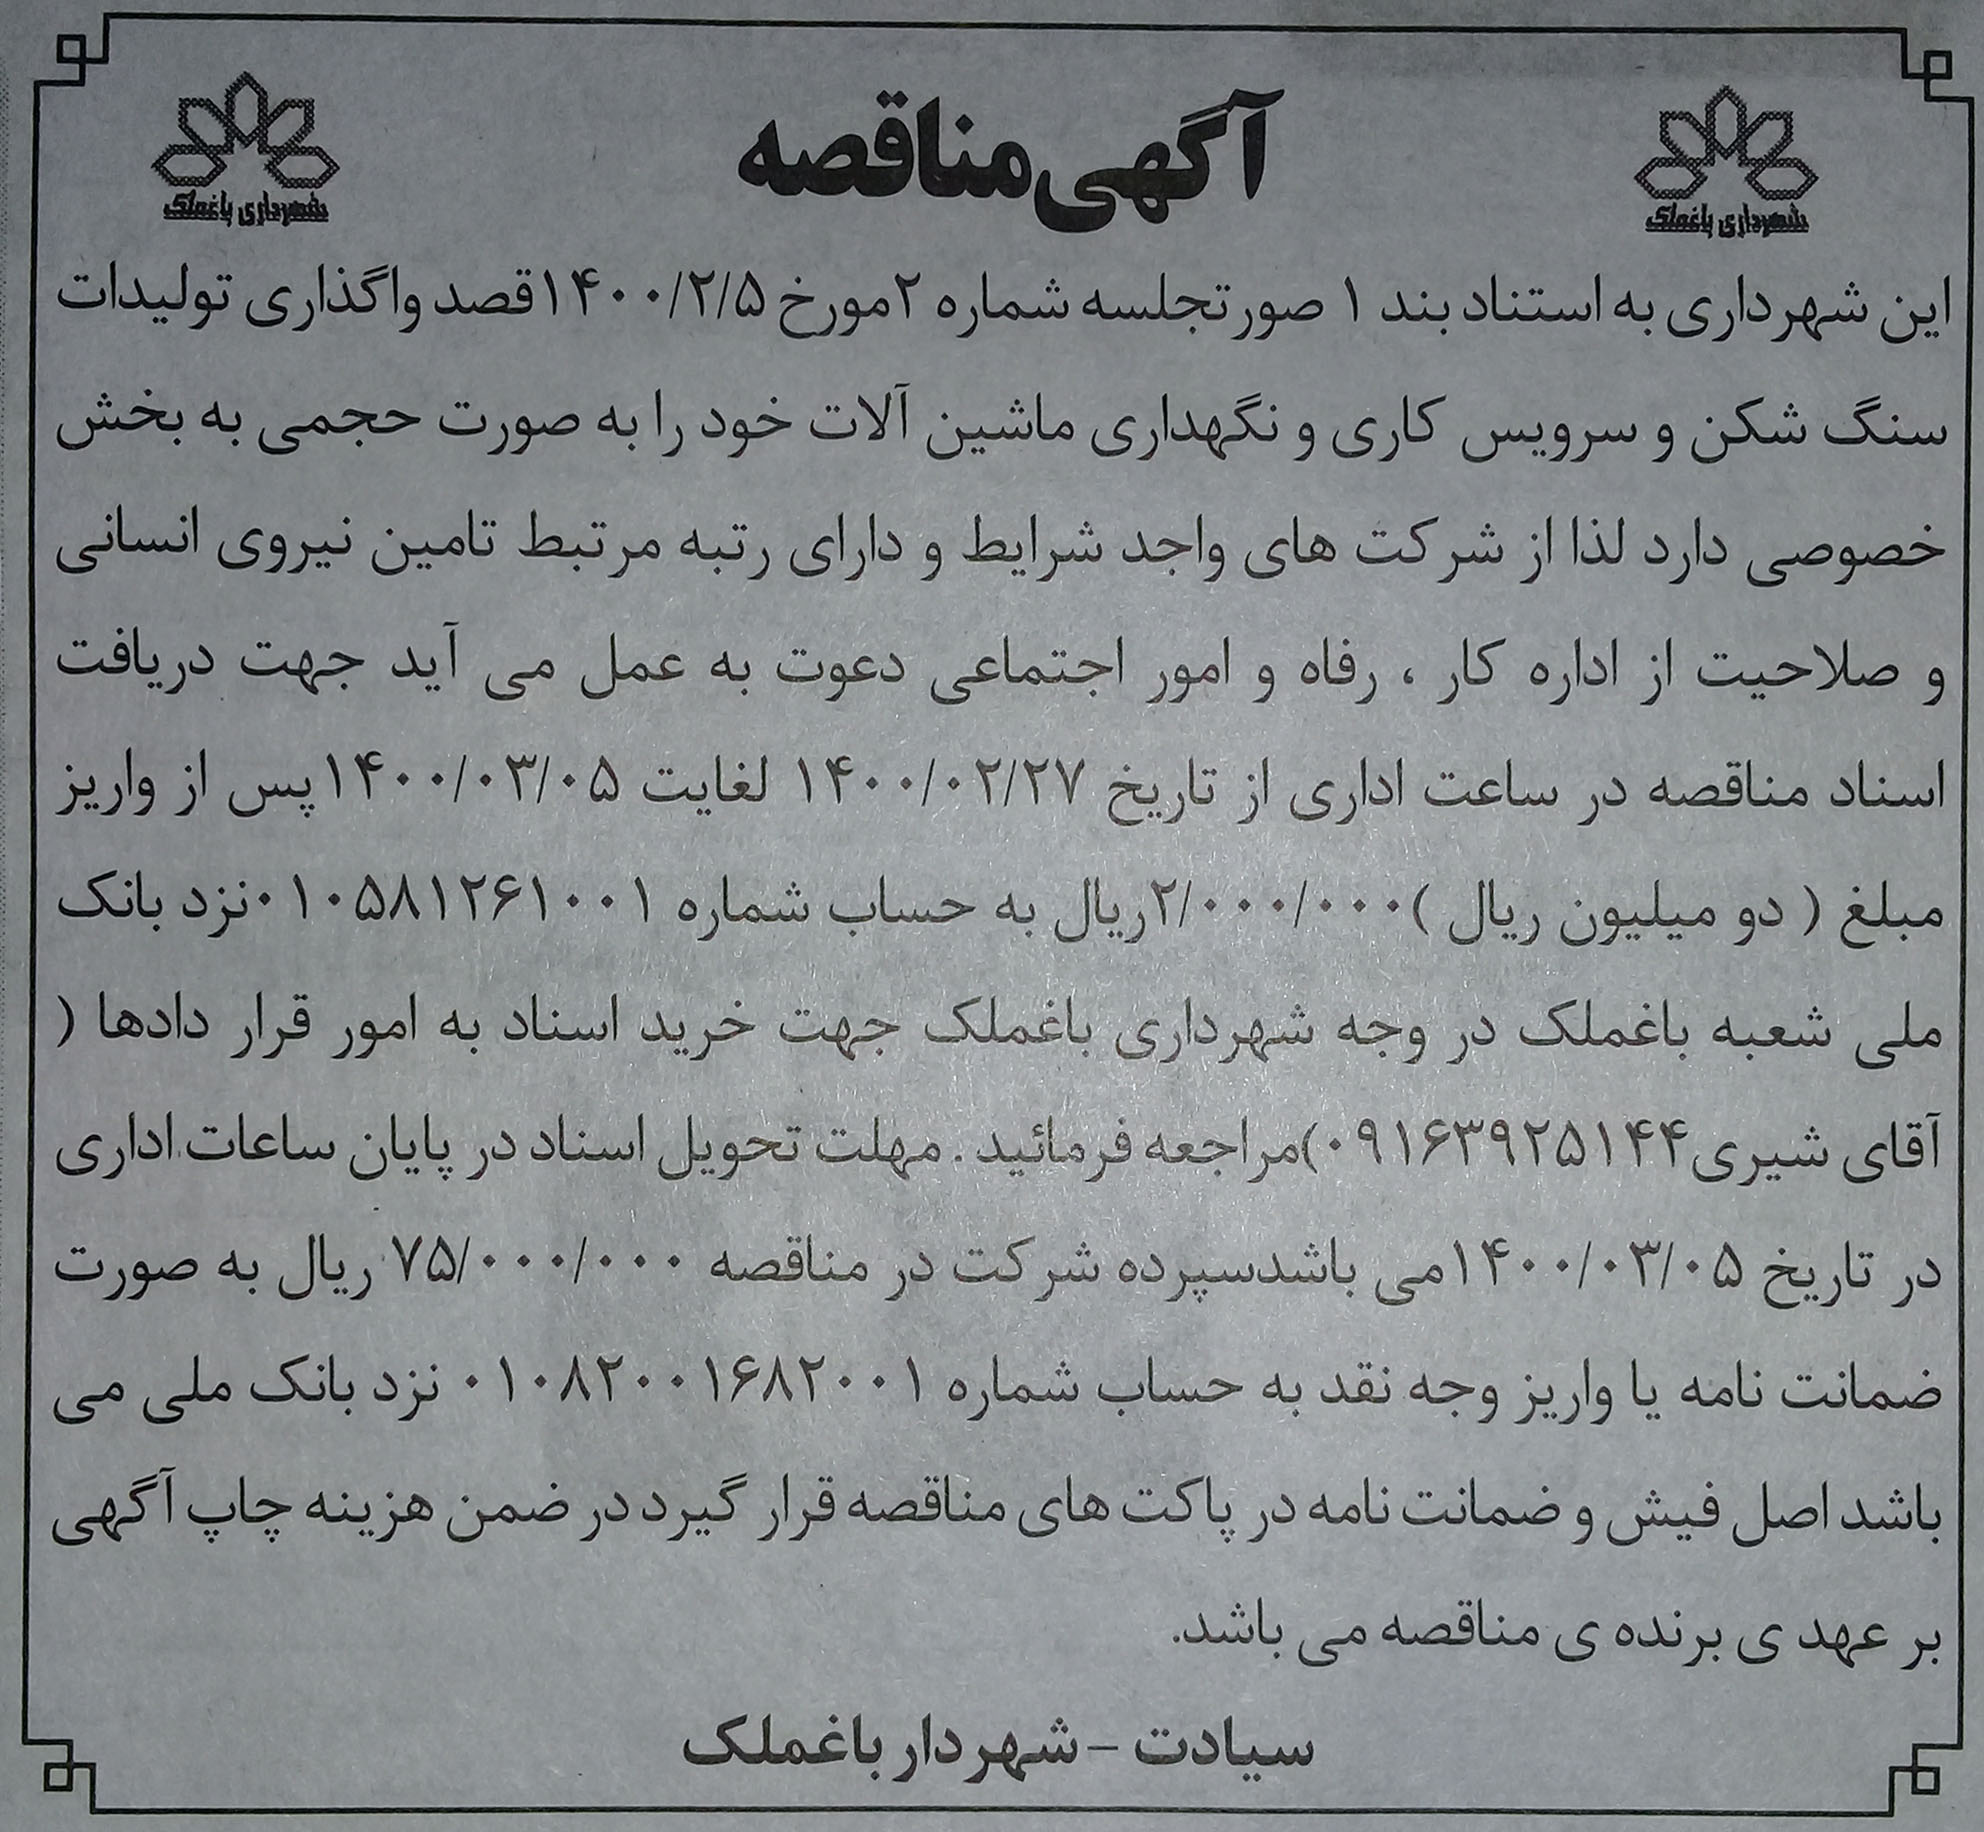 آگهی مناقصه
شهرداری باغملک
شهرداری باغملک
این شهرداری به استناد بند ۱ صورتجلسه شماره ۲مورخ ۱۴۰۰/۲/۵قصد واگذاری تولیدات
سنگ شکن و سرویس کاری و نگهداری ماشین آلات خود را به صورت حجمی به بخش
خصوصی دارد لذا از شرکت های واجد شرایط و دارای رتبه مرتبط تامین نیروی انسانی
و صلاحیت از اداره کار ، رفاه و امور اجتماعی دعوت به عمل می آید جهت دریافت
اسناد مناقصه در ساعت اداری از تاریخ ۱۴۰۰/۰۲/۲۷ لغایت ۱۴۰۰/۰۳/۰۵پس از واریز
مبلغ ( دو میلیون ریال )۲/۰۰۰/۰۰۰ریال به حساب شماره ۰۱۰۵۸۱۲۶۱۰۰۱نزد بانک
ملی شعبه باغملک در وجه شهرداری باغملک جهت خرید اسناد به امور قرار دادها (
آقای شیری۰۹۱۶۳۹۲۵۱۴۴)مراجعه فرمائید . مهلت تحویل اسناد در پایان ساعات اداری
در تاریخ ۱۴۰۰/۰۳/۰۵می باشدسپرده شرکت در مناقصه ۷۵/۰۰۰/۰۰۰ ریال به صورت
ضمانت نامه یا واریز وجه نقد به حساب شماره ۰۱۰۸۲۰۰۱۶۸۲۰۰۱ نزد بانک ملی می
باشد اصل فیش و ضمانت نامه در پاکت های مناقصه قرار گیرد در ضمن هزینه چاپ آگهی
بر عهد ی برنده ی مناقصه می باشد.
سیادت - شهردار باغملک